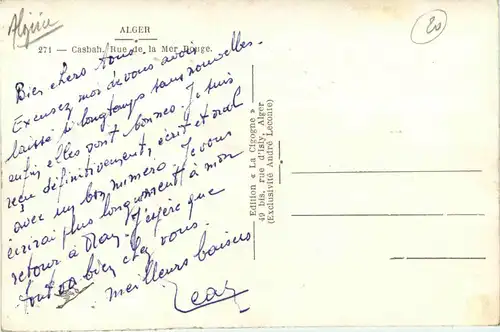 Algérie
ALGER
20
271 — Casbah. Rue de la Mer Rouge.
Bien chers tous
Excusez moi de vous avoir
laissé si longtemps sans nouvelles.
enfin elles sont bonnes. Je suis
reçu définitivement, écrit et oral
avec un bon numéro. Je vous
écrirai plus longuement à mon
retour à Oran. J'espère que
tout va bien chez vous.
Meilleurs baisers
Edition « La Cigogne »
49 bis, rue d'Isly, Alger
(Exclusivité André Leconte)